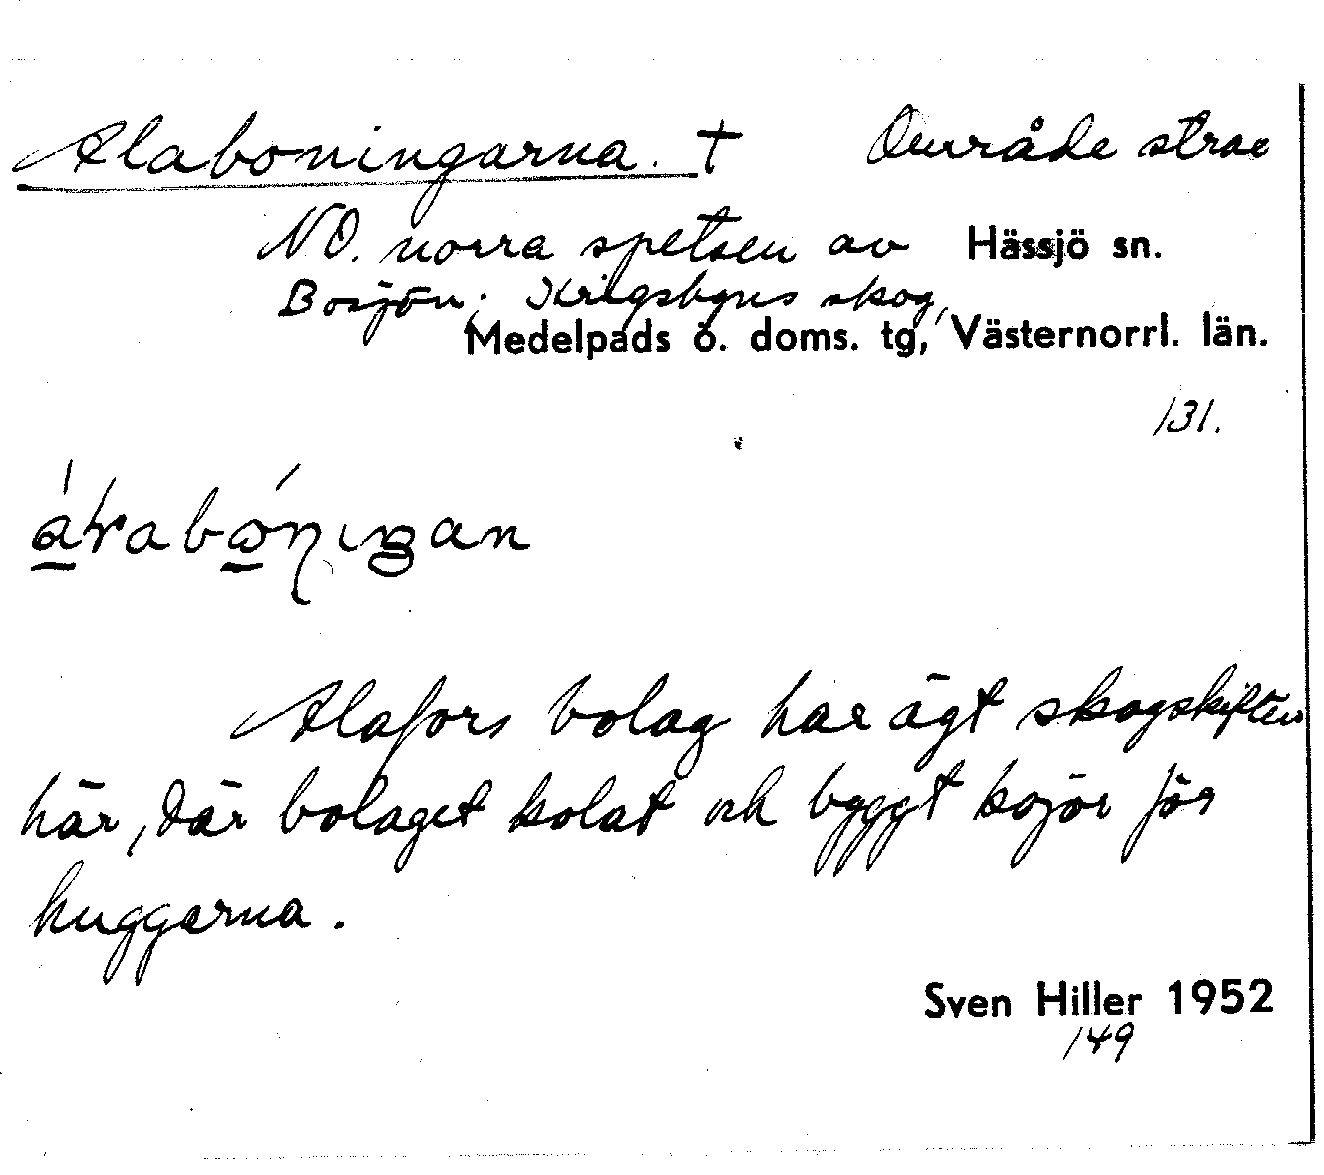 Alaboningarna. † Område strax
NO. norra spetsen av Hässjö sn.
Bosjön; Krigsbyns skog,
Medelpads ö. doms. tg, Västernorrl. län.
131.
Alafors bolag har ägt skogskiften
här, där bolaget kolat och byggt kojor för
huggarna.
Sven Hiller 1952
149